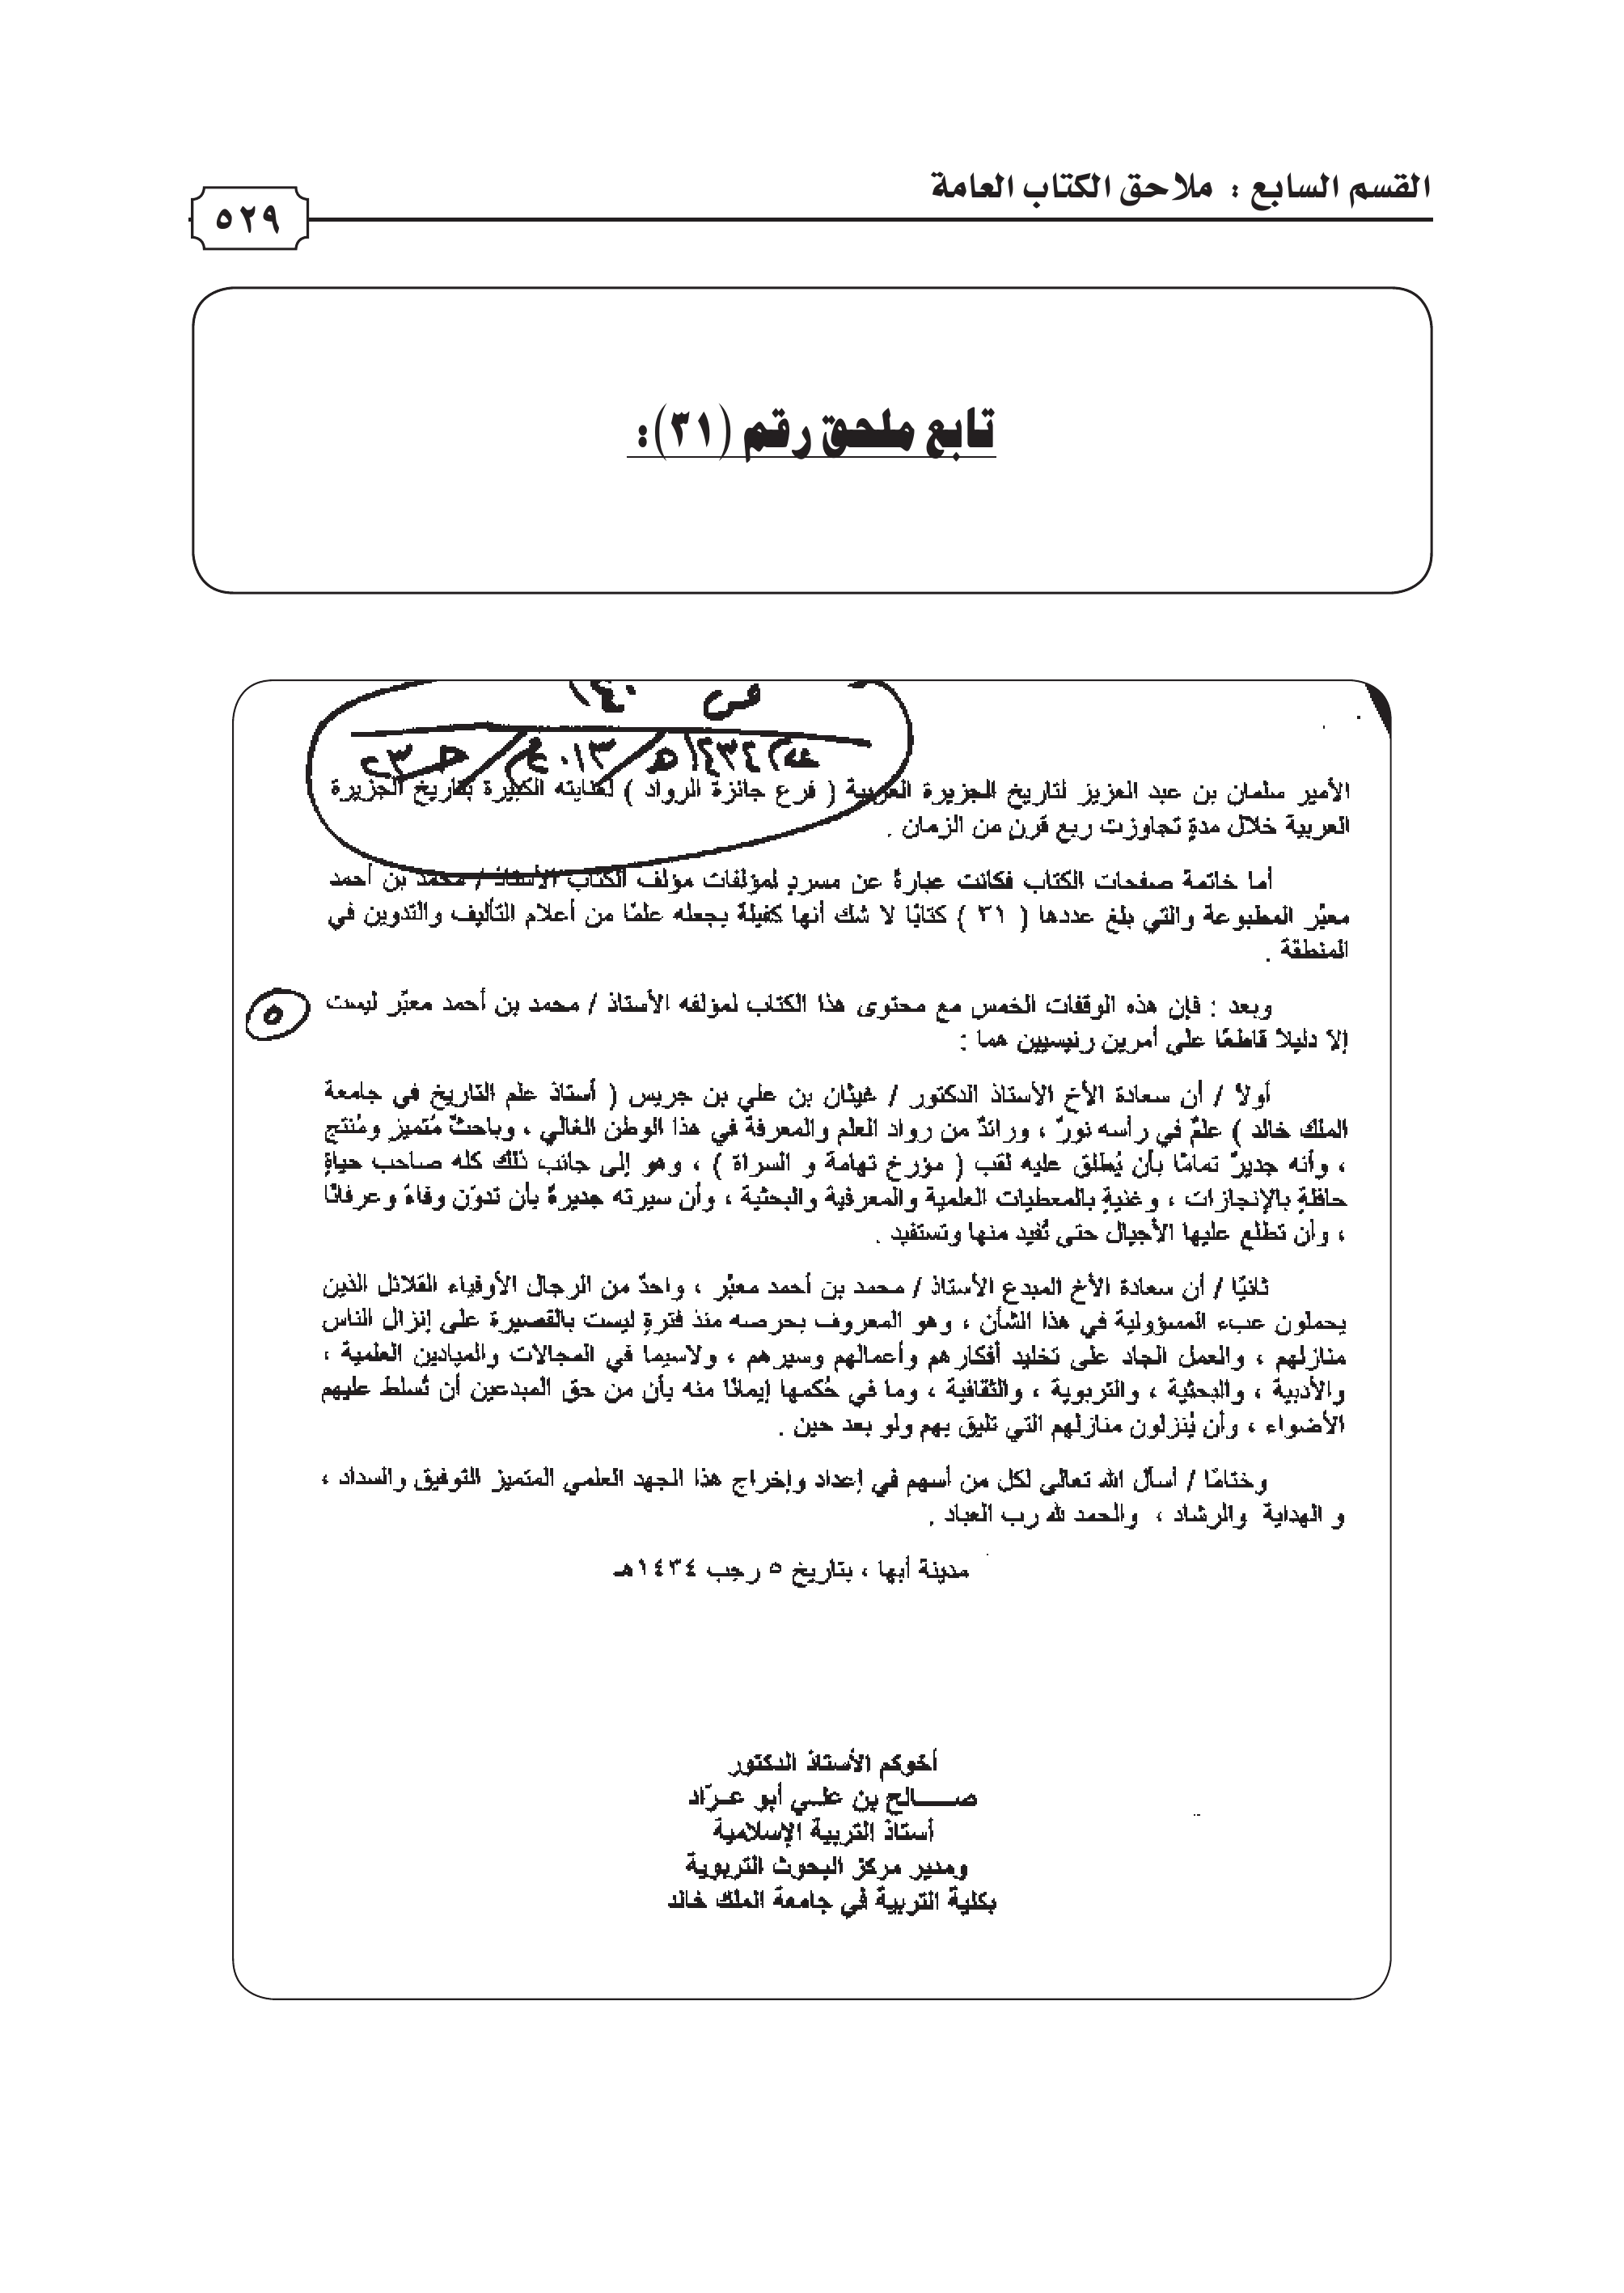 القسم السابع : ملاحق الكتاب العامة
٥٢٩
تابع ملحق رقم (٣١):
في
الأمير سلمان بن عبد العزيز لتاريخ الجزيرة العربية ( فرع جائزة الرواد ) لعنايته الكبيرة بتاريخ الجزيرة
العربية خلال مدةٍ تجاوزت ربع قرنٍ من الزمان .
أما خاتمة صفحات الكتاب فكانت عبارةً عن مسردٍ لمؤلفات مؤلف الكتاب الأستاذ / محمد بن أحمد
معبّر المطبوعة والتي بلغ عددها ( ٣١ ) كتابًا لا شك أنها كفيلة بجعله علمًا من أعلام التأليف والتدوين في
المنطقة .
وبعد : فإن هذه الوقفات الخمس مع محتوى هذا الكتاب لمؤلفه الأستاذ / محمد بن أحمد معبّر ليست
إلا دليلاً قاطعًا على أمرين رئيسيين هما :
٥
أولاً / أن سعادة الأخ الأستاذ الدكتور / غيثان بن علي بن جريس ( أستاذ علم التاريخ في جامعة
الملك خالد ) علمٌ في رأسه نورٌ ، ورائدٌ من رواد العلم والمعرفة في هذا الوطن الغالي ، وباحثٌ مُتميز ومُنتج
، وأنه جديرٌ تمامًا بأن يُطلق عليه لقب ( مؤرخ تهامة و السراة ) ، وهو إلى جانب ذلك كله صاحب حياةٍ
حافلةٍ بالإنجازات ، وغنيةٍ بالمعطيات العلمية والمعرفية والبحثية ، وأن سيرته جديرةٌ بأن تدوّن وفاءً وعرفانًا
، وأن تطلع عليها الأجيال حتى تُفيد منها وتستفيد .
ثانيًا / أن سعادة الأخ المبدع الأستاذ / محمد بن أحمد معبّر ، واحدٌ من الرجال الأوفياء القلائل الذين
يحملون عبء المسؤولية في هذا الشأن ، وهو المعروف بحرصه منذ فترةٍ ليست بالقصيرة على إنزال الناس
منازلهم ، والعمل الجاد على تخليد أفكارهم وأعمالهم وسيرهم ، ولاسيما في المجالات والميادين العلمية ،
والأدبية ، والبحثية ، والتربوية ، والثقافية ، وما في حُكمها إيمانًا منه بأن من حق المبدعين أن تُسلط عليهم
الأضواء ، وأن يُنزلون منازلهم التي تليق بهم ولو بعد حين .
وختامًا / أسأل الله تعالى لكل من أسهم في إعداد وإخراج هذا الجهد العلمي المتميز التوفيق والسداد ،
و الهداية والرشاد ، والحمد لله رب العباد .
مدينة أبها ، بتاريخ ٥ رجب ١٤٣٤هـ
أخوكم الأستاذ الدكتور
صـــالح بن علـي أبو عـرّاد
أستاذ التربية الإسلامية
ومدير مركز البحوث التربوية
بكلية التربية في جامعة الملك خالد